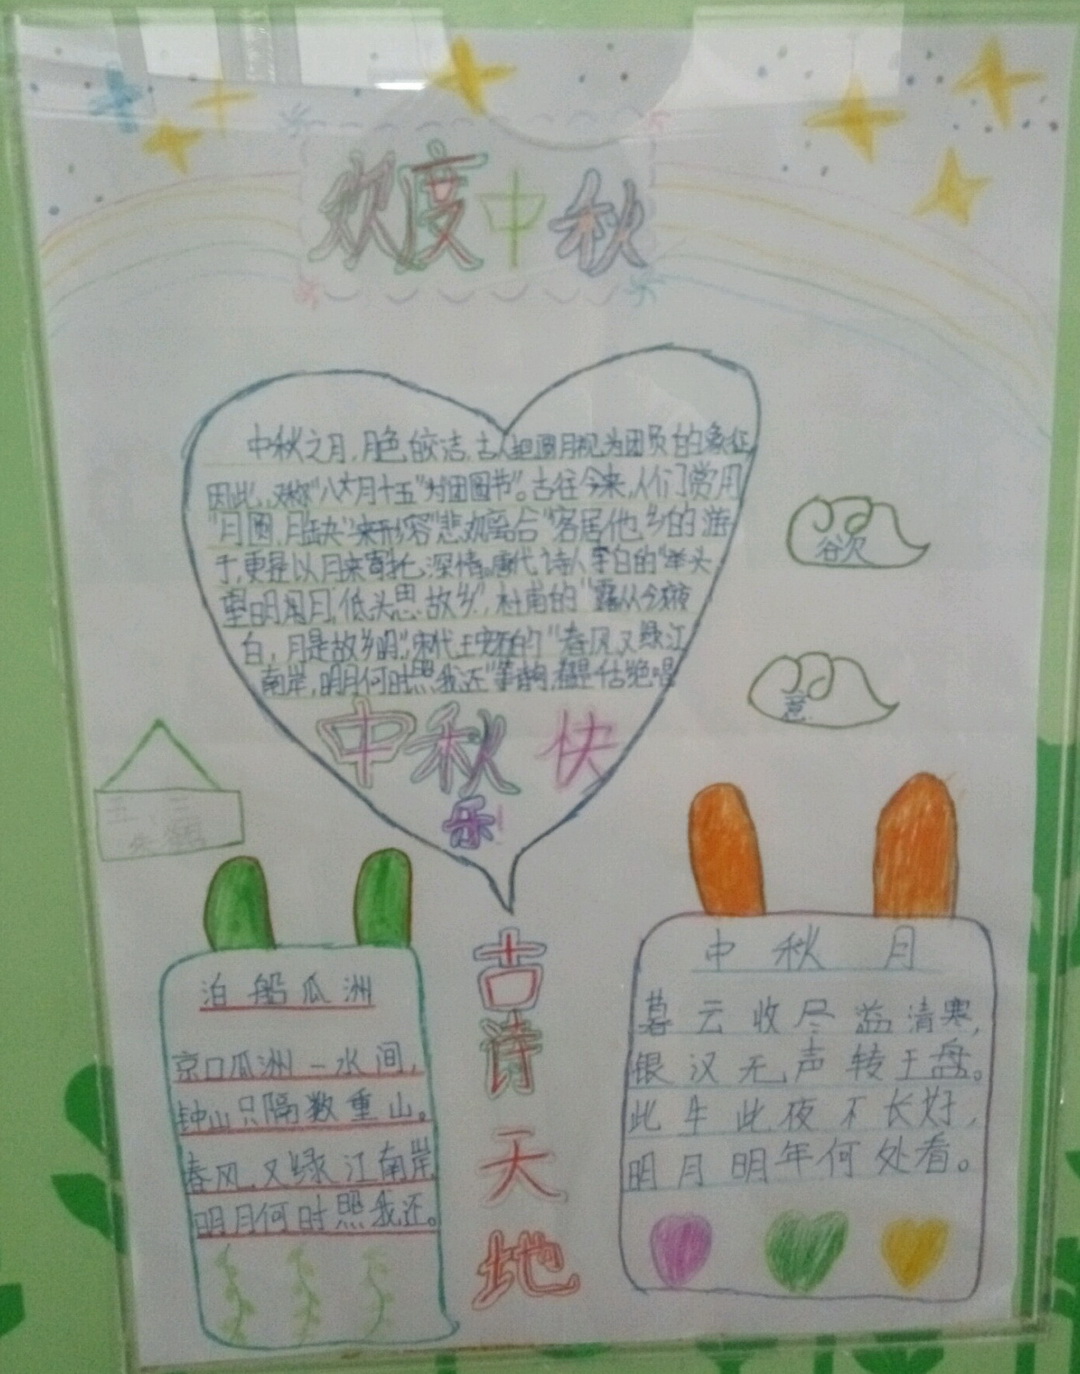 欢度中秋
中秋之月,月色皎洁,古人把圆月视为团员的象征
因此,又称"八月十五"为团圆节"。古往今来,人们常用
"月圆、月缺"来形容"悲欢离合"客居他乡的游
子,更是以月来寄托深情。唐代诗人李白的"举头
望明月,低头思故乡",杜甫的"露从今夜
白,月是故乡明",宋代王安石的"春风又绿江
南岸,明月何时照我还"等诗句,都是千古绝唱
中秋快
乐!
欢
意
五、三
古诗天地
泊船瓜洲
京口瓜洲一水间,
钟山只隔数重山。
春风又绿江南岸,
明月何时照我还。
中秋月
暮云收尽溢清寒,
银汉无声转玉盘。
此生此夜不长好,
明月明年何处看。